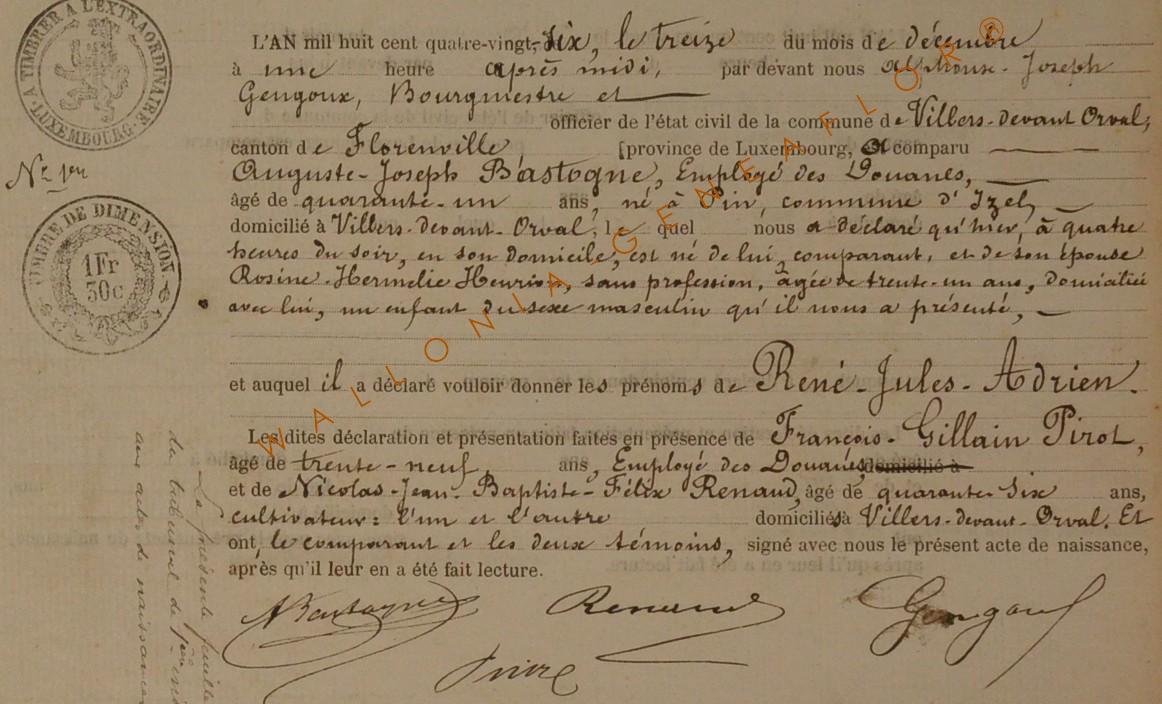 A TIMBRER A L'EXTRAORDINAIRE
LUXEMBOURG
L'AN mil huit cent quatre-vingt-dix, le treize du mois de décembre
à une heure après midi, par devant nous Alphonse-Joseph
Gengoux, Bourgmestre et
officier de l'état civil de la commune de Villers-devant Orval,
canton de Florenville [province de Luxembourg, a comparu
Nr 1er
Auguste-Joseph Bastogne, Employé des Douanes,
âgé de quarante-un ans, né à Pin, commune d'Izel,
domicilié à Villers-devant-Orval, lequel nous a déclaré qu'hier, à quatre
heures du soir, en son domicile, est né de lui, comparant, et de son épouse
Rosine-Hermelie Henrion, sans profession, âgée de trente-un ans, domiciliée
avec lui, un enfant du sexe masculin qu'il nous a présenté,
TIMBRE DE DIMENSION
1Fr
30c
et auquel il a déclaré vouloir donner les prénoms de René-Jules-Adrien.
Les dites déclaration et présentation faites en présence de François-Gillain Pirot,
âgé de trente-neuf, ans, Employé des Douanes, domicilié à
et de Nicolas-Jean-Baptiste-Félix Renaud, âgé de quarante-six ans,
cultivateur: l'un et l'autre domiciliés à Villers-devant-Orval. Et
ont, le comparant et les deux témoins, signé avec nous le présent acte de naissance,
après qu'il leur en a été fait lecture.
ABastogne Renaud Gengoux
La présente feuille
du tribunal de 1ère
aux actes de naissance
WALLONIA GENEAFLOR ®